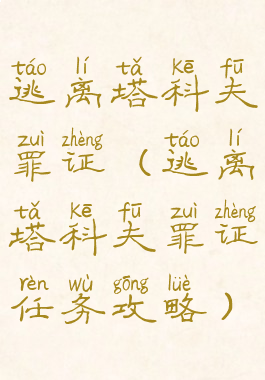 táo lí tǎ kē fū
逃离塔科夫
zuì zhèng táo lí
罪证（逃离
tǎ kē fū zuì zhèng
塔科夫罪证
rèn wù gōng lüè
任务攻略）